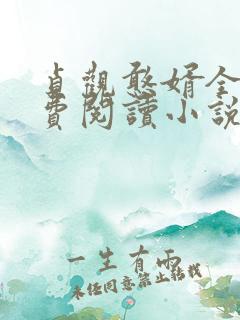 貞觀憨婿全
費閱讀小說
一生有雨
未经同意禁止转载